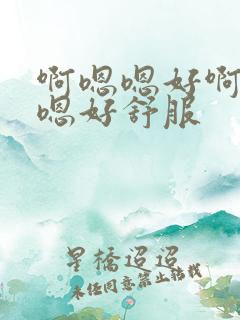 啊嗯嗯好啊
嗯好舒服
星橋迢迢
未经同意禁止转载